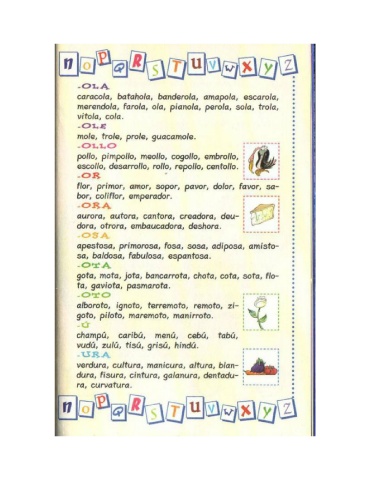 n o p Q R S T U V W X Y Z
-OLA
caracola, batahola, banderola, amapola, escarola,
merendola, farola, ola, pianola, perola, sola, trola,
vitola, cola.
-OLE
mole, trole, prole, guacamole.
-OLLO
pollo, pimpollo, meollo, cogollo, embrollo,
escollo, desarrollo, rollo, repollo, centollo.
-OR
flor, primor, amor, sopor, pavor, dolor, favor, sa-
bor, coliflor, emperador.
-ORA
aurora, autora, cantora, creadora, deu-
dora, otrora, embaucadora, deshora.
-OSA
apestosa, primorosa, fosa, sosa, adiposa, amisto-
sa, baldosa, fabulosa, espantosa.
-OTA
gota, mota, jota, bancarrota, chota, cota, sota, flo-
ta, gaviota, pasmarota.
-OTO
alboroto, ignoto, terremoto, remoto, zi-
goto, piloto, maremoto, manirroto.
-Ú
champú, caribú, menú, cebú, tabú,
vudú, zulú, tisú, grisú, hindú.
-URA
verdura, cultura, manicura, altura, blan-
dura, fisura, cintura, galanura, dentadu-
ra, curvatura.
n o p Q R S T U V W X Y Z